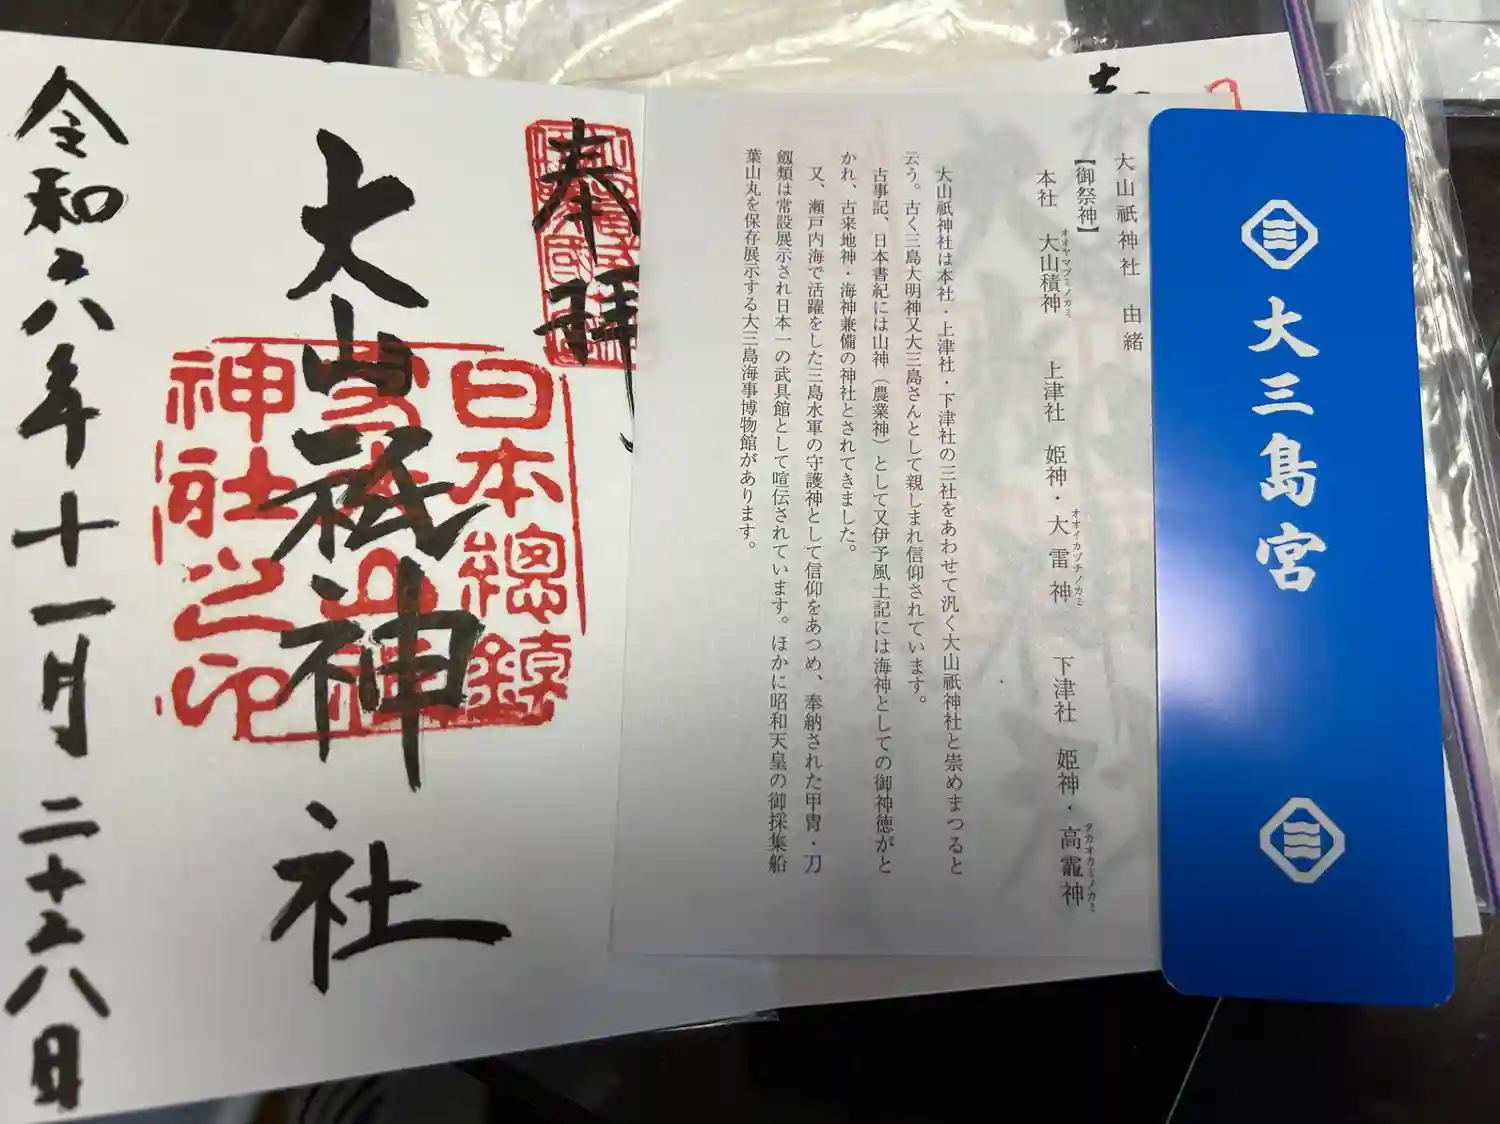 大三島宮
大山祇神社　由緒
【御祭神】
本社　大山積神　上津社　姫神・大雷神　下津社　姫神・高龗神
オオヤマヅミノカミ　オオイカヅチノカミ　タカオカミノカミ
大山祇神社は本社・上津社・下津社の三社をあわせて汎く大山祇神社と崇めまつると
云う。古く三島大明神又大三島さんとして親しまれ信仰されています。
古事記、日本書紀には山神（農業神）として又伊予風土記には海神としての御神徳がと
かれ、古来地神・海神兼備の神社とされてきました。
又、瀬戸内海で活躍をした三島水軍の守護神として信仰をあつめ、奉納された甲冑・刀
剱類は常設展示され日本一の武具館として喧伝されています。ほかに昭和天皇の御採集船
葉山丸を保存展示する大三島海事博物館があります。
奉拝
大山祇神社
日本總鎮
守大山祇
神社之印
令和六年十一月二十六日